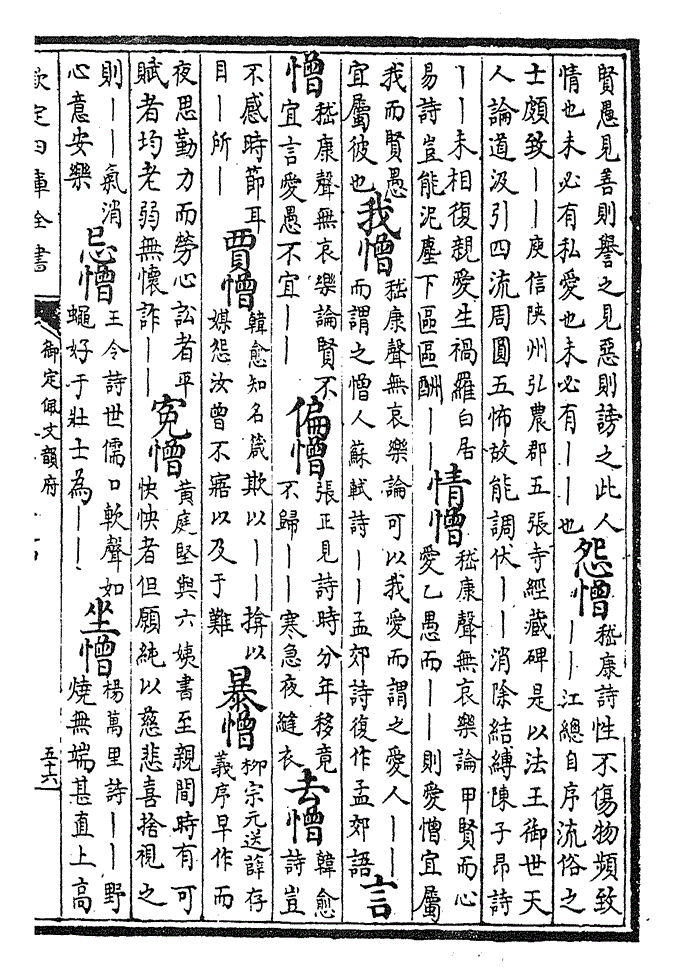 賢愚見善則譽之見惡則謗之此人
情也未必有私愛也未必有丨丨也
怨憎
嵇康詩性不傷物頻致
丨丨江總自序流俗之
士頗致丨丨庾信陜州弘農郡五張寺經藏碑是以法王御世天
人論道汲引四流周圓五怖故能調伏丨丨消除結縛陳子昂詩
丨丨未相復親愛生禍羅白居
易詩豈能泥塵下區區酬丨丨
情憎
嵇康聲無哀樂論甲賢而心
愛乙愚而丨丨則愛憎宜屬
我而賢愚
宜屬彼也
我憎
嵇康聲無哀樂論可以我愛而謂之愛人丨丨
而謂之憎人蘇軾詩丨丨孟郊詩復作孟郊語
言
憎
嵇康聲無哀樂論賢不
宜言愛愚不宜丨丨
偏憎
張正見詩時分年移竟
不歸丨丨寒急夜縫衣
去憎
韓愈
詩豈
不感時節耳
目丨所丨
賈憎
韓愈知名箴欺以丨丨揜以
媒怨汝曾不寤以及于難
暴憎
柳宗元送薛存
義序早作而
夜思勤力而勞心訟者平
賦者均老弱無懷詐丨丨
寃憎
黃庭堅與六姨書至親間時有可
怏怏者但願純以慈悲喜捨視之
則丨丨氣消
心意安樂
忌憎
王令詩世儒口軟聲如
蠅好于壯士為丨丨
坐憎
楊萬里詩丨丨野
燒無端甚直上高
欽定四庫全書
御定佩文韻府
五十六